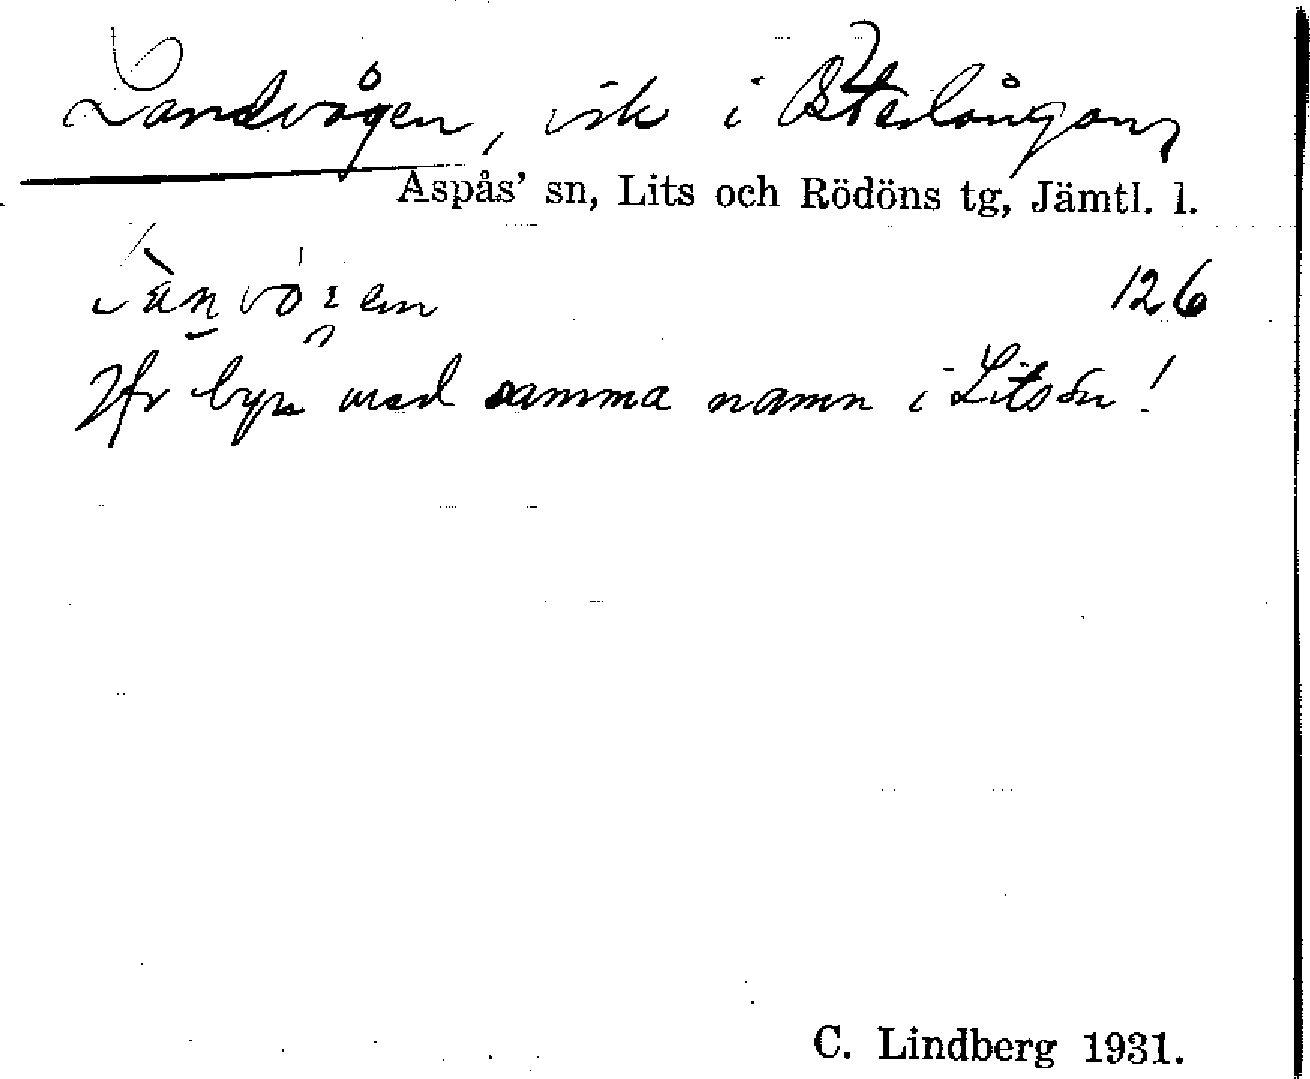 Landvågen, vik i Österlångan,
Aspås' sn, Lits och Rödöns tg, Jämtl. l.
126
Jfr byn med samma namn i Lits sn!
C. Lindberg 1931.